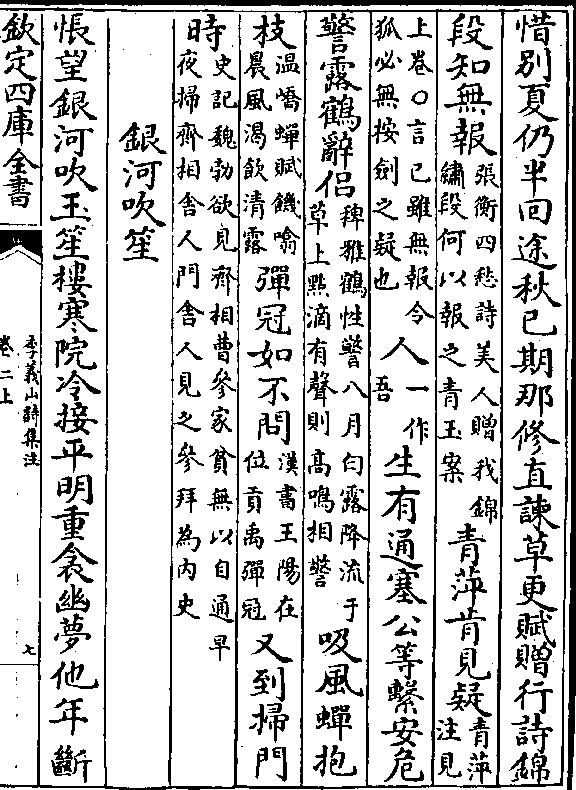 惜别夏仍半回途秋已期那修直諫草更賦贈行詩錦
段知無報
張衡四愁詩美人贈我錦
繡段何以報之青玉案
青萍肯見疑
青萍
注見
上卷○言已雖無報令
狐必無按劍之疑也
人
一作
吾
生有通塞公等繫安危
警露鶴辭侣
稗雅鶴性警八月白露降流于
草上㸃滴有聲則高鳴相警
吸風蟬抱
枝
温嶠蟬賦饑噏
晨風渴飲清露
彈冠如不問
漢書王陽在
位貢禹彈冠
又到掃門
時
史記魏勃欲見齊相曹參家貧無以自通早
夜掃齊相舍人門舍人見之參拜為内史
銀河吹笙
悵望銀河吹玉笙樓寒院冷接平明重衾幽夢他年斷
欽定四庫全書
李義山詩集注
卷二上
七